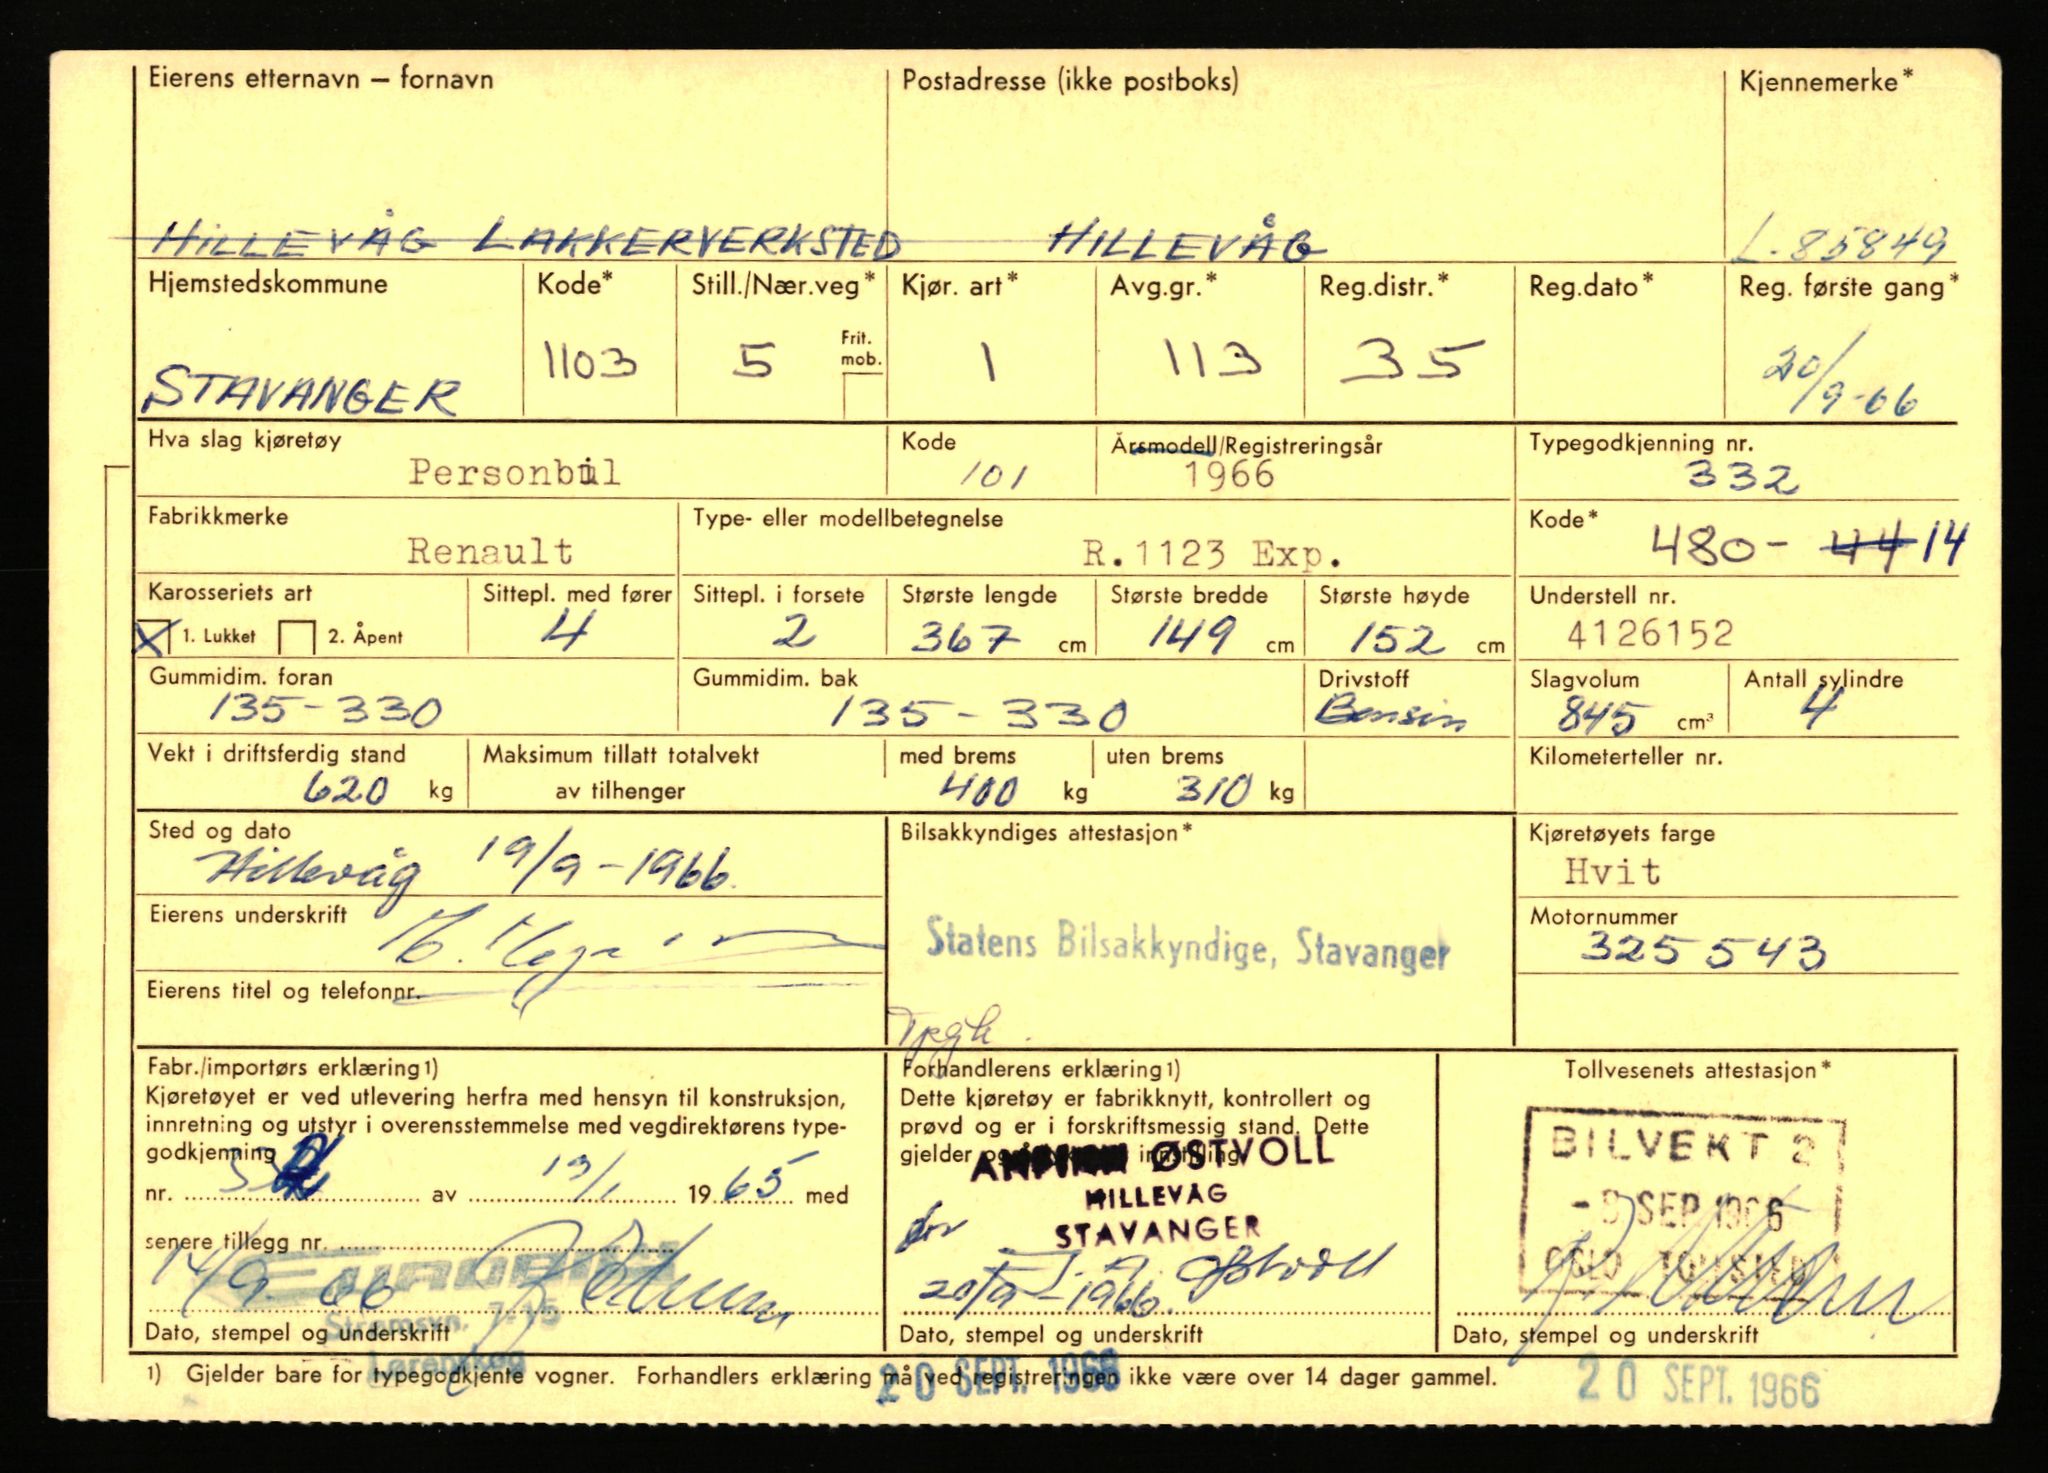 Eierens etternavn – fornavn Postadresse (ikke postboks) Kjennemerke*
HILLEVÅG LAKKERVERKSTED HILLEVÅG L-85849
Hjemstedskommune Kode* Still./Nær.veg* Kjør. art* Avg.gr.* Reg.distr.* Reg.dato* Reg. første gang*
Frit. mob.
STAVANGER 1103 5 1 113 35 20/9-66
Hva slag kjøretøy Kode Årsmodell/Registreringsår Typegodkjenning nr.
Personbil 101 1966 332
Fabrikkmerke Type- eller modellbetegnelse Kode*
Renault R.1123 Exp. 480- 44 14
Karosseriets art Sittepl. med fører Sittepl. i forsete Største lengde Største bredde Største høyde Understell nr.
X 1. Lukket 2. Åpent 4 2 367 cm 149 cm 152 cm 4126152
Gummidim. foran Gummidim. bak Drivstoff Slagvolum Antall sylindre
135-330 135-330 Bensin 845 cm³ 4
Vekt i driftsferdig stand Maksimum tillatt totalvekt med brems uten brems Kilometerteller nr.
620 kg av tilhenger 400 kg 310 kg
Sted og dato Bilsakkyndiges attestasjon* Kjøretøyets farge
Hillevåg 19/9-1966 Hvit
Eierens underskrift Motornummer
Statens Bilsakkyndige, Stavanger 325543
Eierens titel og telefonnr.
Tpgk.
Fabr./importørs erklæring1) Forhandlerens erklæring1) Tollvesenets attestasjon*
Kjøretøyet er ved utlevering herfra med hensyn til konstruksjon, innretning og utstyr i overensstemmelse med vegdirektørens type-
godkjenning
nr. av 19/1 1965 med
senere tillegg nr.
14/9-66
Strømsvn. 7-15
Lørenskog
Dato, stempel og underskrift
Dette kjøretøy er fabrikknytt, kontrollert og
prøvd og er i forskriftsmessig stand. Dette
gjelder innstilling.
ØSTVOLL
HILLEVÅG
STAVANGER
for
20/9-1966. Østvoll
Dato, stempel og underskrift
BILVEKT 2
SEP. 1966
OSLO TOLLSTED
Dato, stempel og underskrift
1) Gjelder bare for typegodkjente vogner. Forhandlers erklæring må ved registreringen ikke være over 14 dager gammel.
20 SEPT. 1966 20 SEPT. 1966